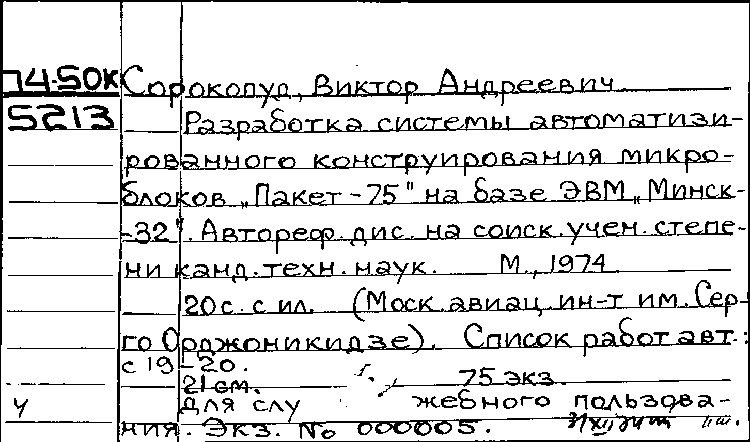 74-50к Сорокопуд, Виктор Андреевич
5213 Разработка системы автоматизи-
рованного конструирования микро-
блоков „Пакет-75" на базе ЭВМ „Минск-
-32". Автореф. дис. на соиск. учен. степе-
ни канд. техн. наук. М., 1974
20 с. с ил. (Моск. авиац. ин-т им. Сер-
го Орджоникидзе). Список работ авт.:
с 19-20.
21 см. 75 экз.
Ч Для слу жебного пользова-
ния. Экз. № 000005.